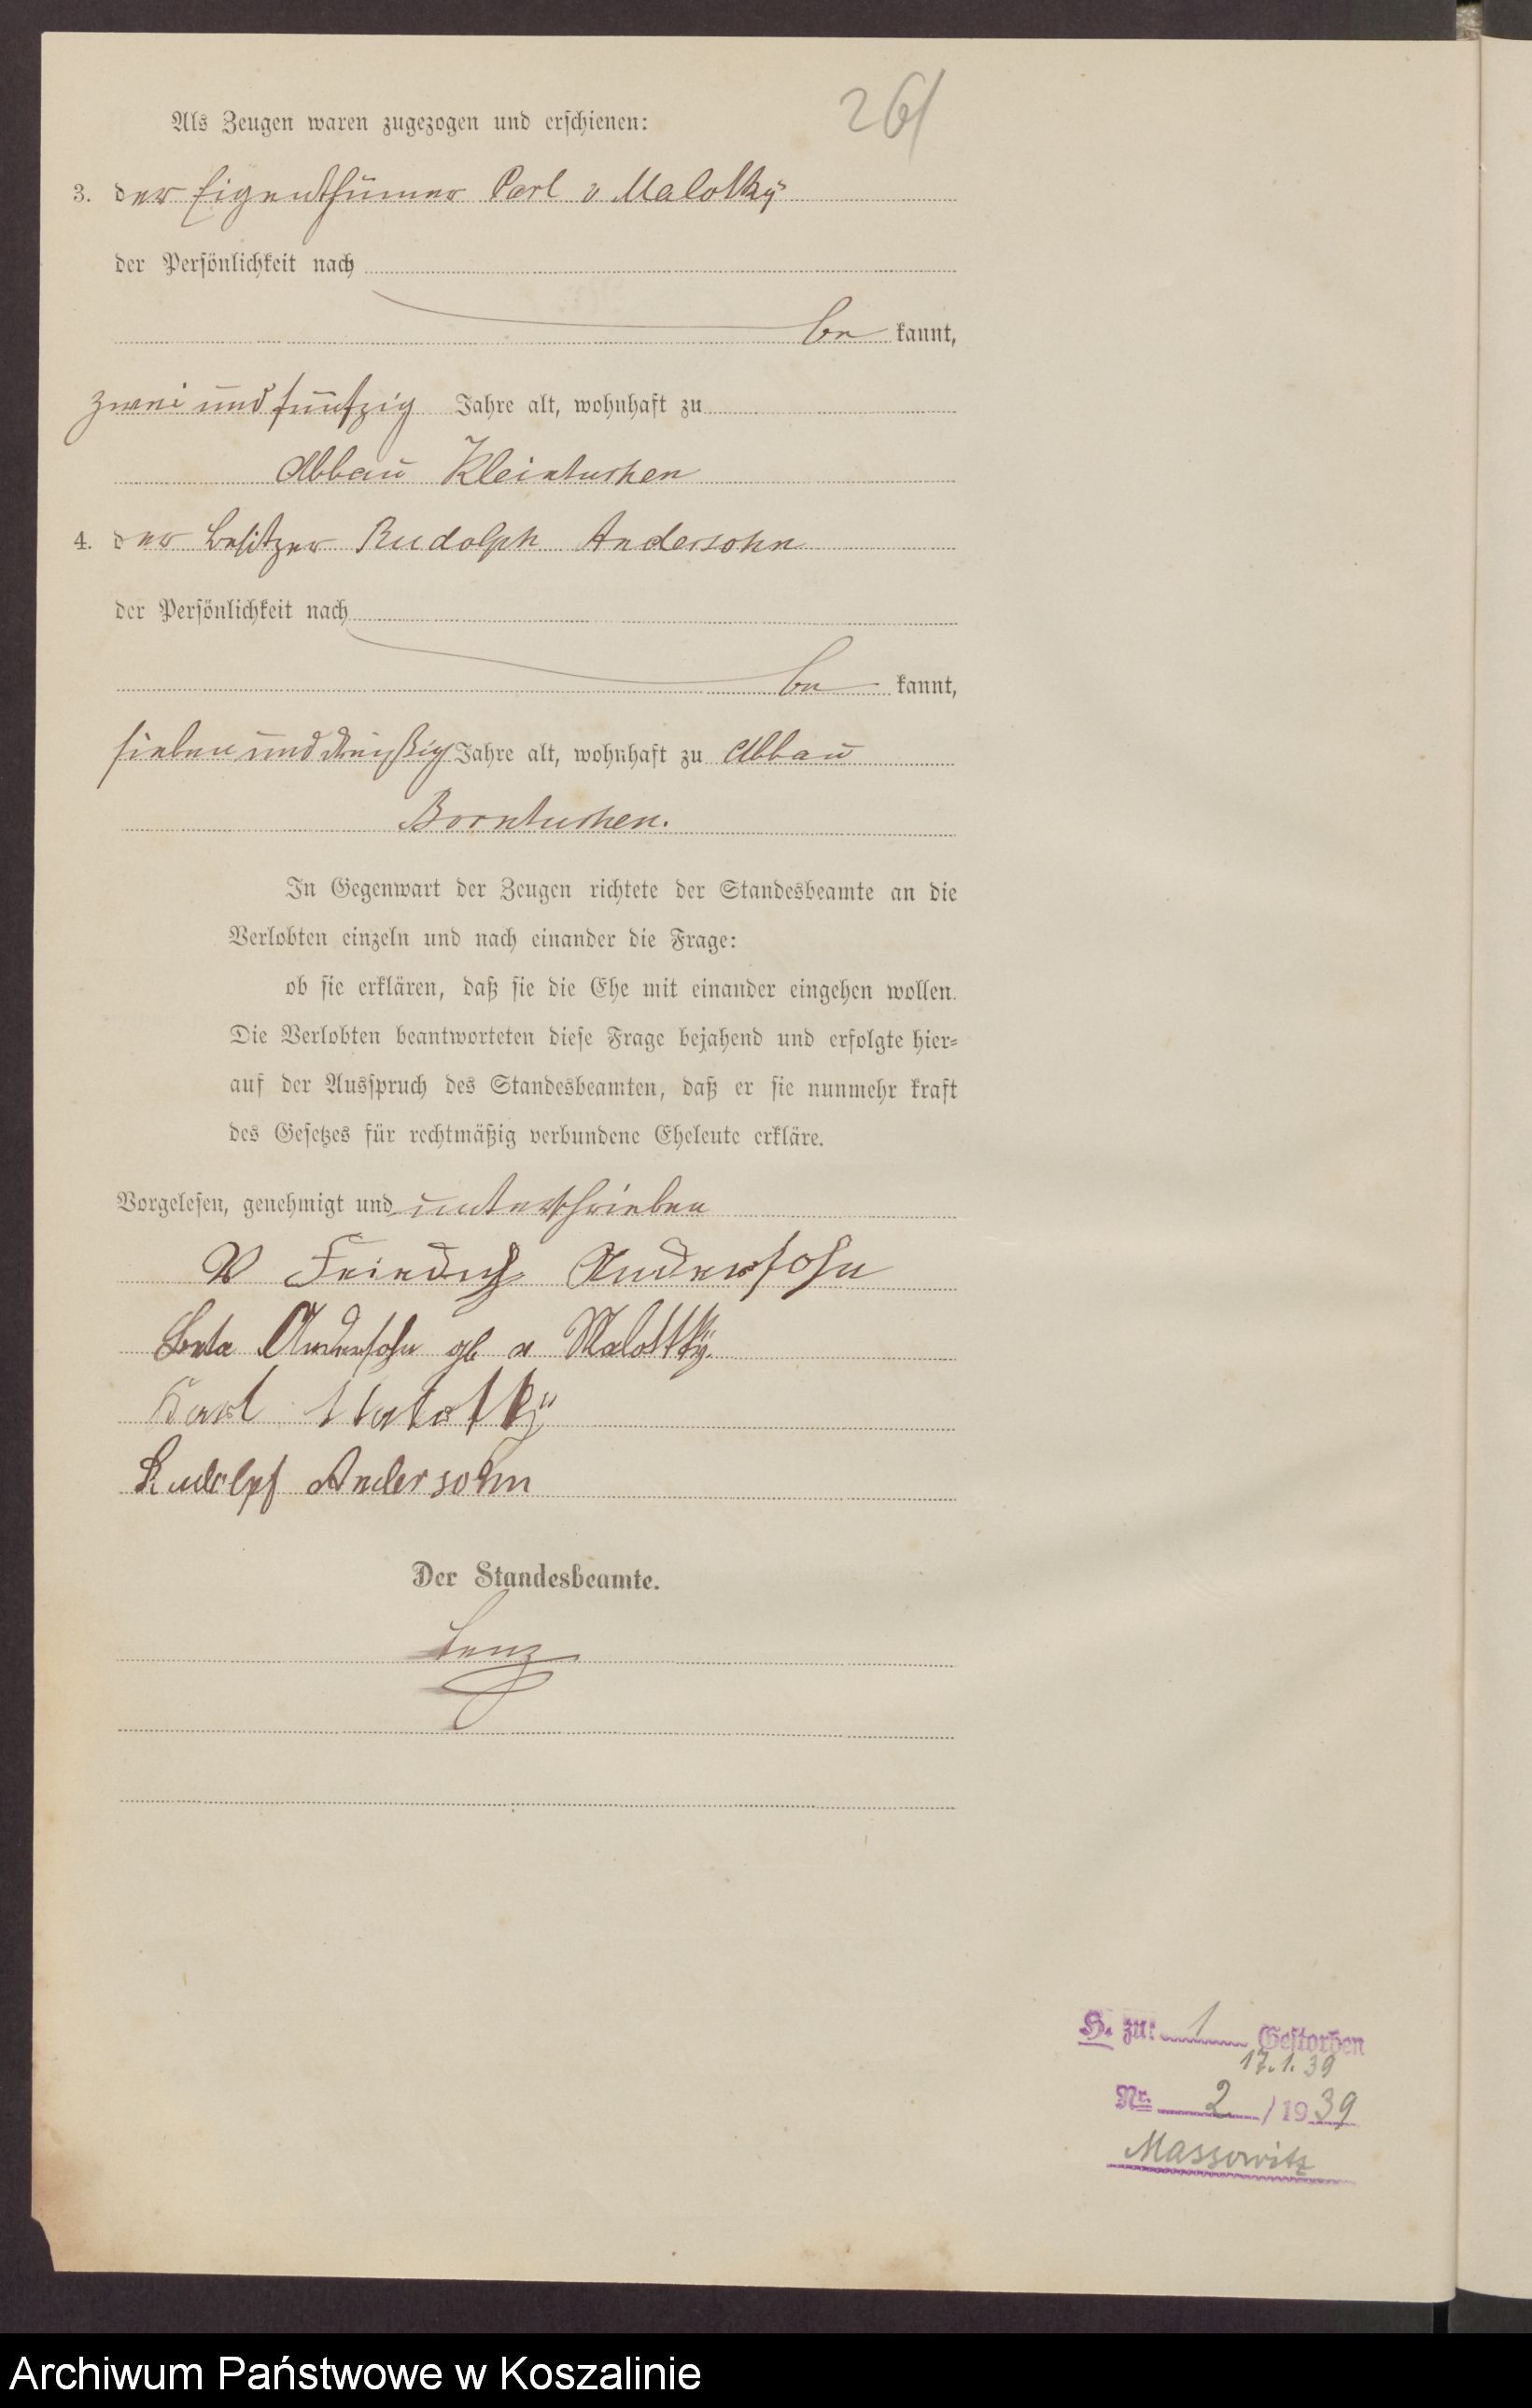 261
Als Zeugen waren zugezogen und erschienen:
3. der Eigenthümer Carl v Malottky
der Persönlichkeit nach
be kannt,
zwei und fünfzig Jahre alt, wohnhaft zu
Abbau Kleintuchen
4. der Besitzer Rudolph Andersohn
der Persönlichkeit nach
be kannt,
sieben und dreißig Jahre alt, wohnhaft zu Abbau
Borntuchen.
In Gegenwart der Zeugen richtete der Standesbeamte an die
Verlobten einzeln und nach einander die Frage:
ob sie erklären, daß sie die Ehe mit einander eingehen wollen.
Die Verlobten beantworteten diese Frage bejahend und erfolgte hier=
auf der Ausspruch des Standesbeamten, daß er sie nunmehr kraft
des Gesetzes für rechtmäßig verbundene Eheleute erkläre.
Vorgelesen, genehmigt und unterschrieben
Friedrich Andersohn
Andersohn gb v Malottky.
Karl Malottky
Rudolpf Andersohn
Der Standesbeamte.
Lenz
H. zu: 1 Gestorben
17.1.39
Nr. 2 / 1939
Massowitz
Archiwum Państwowe w Koszalinie